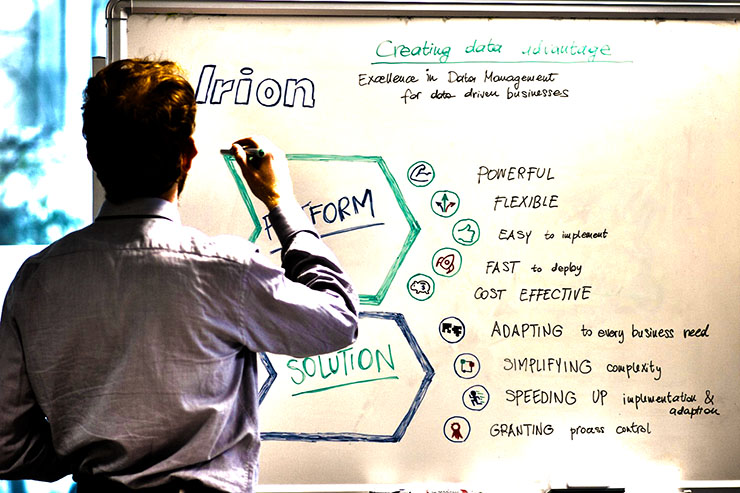 Creating data advantage
Irion
Excellence in Data Management
for data driven businesses
POWERFUL
FLEXIBLE
EASY to implement
FAST to deploy
COST EFFECTIVE
SOLUTION
ADAPTING to every business need
SIMPLIFYING complexity
SPEEDING UP implementation &
adaption
GRANTING process control